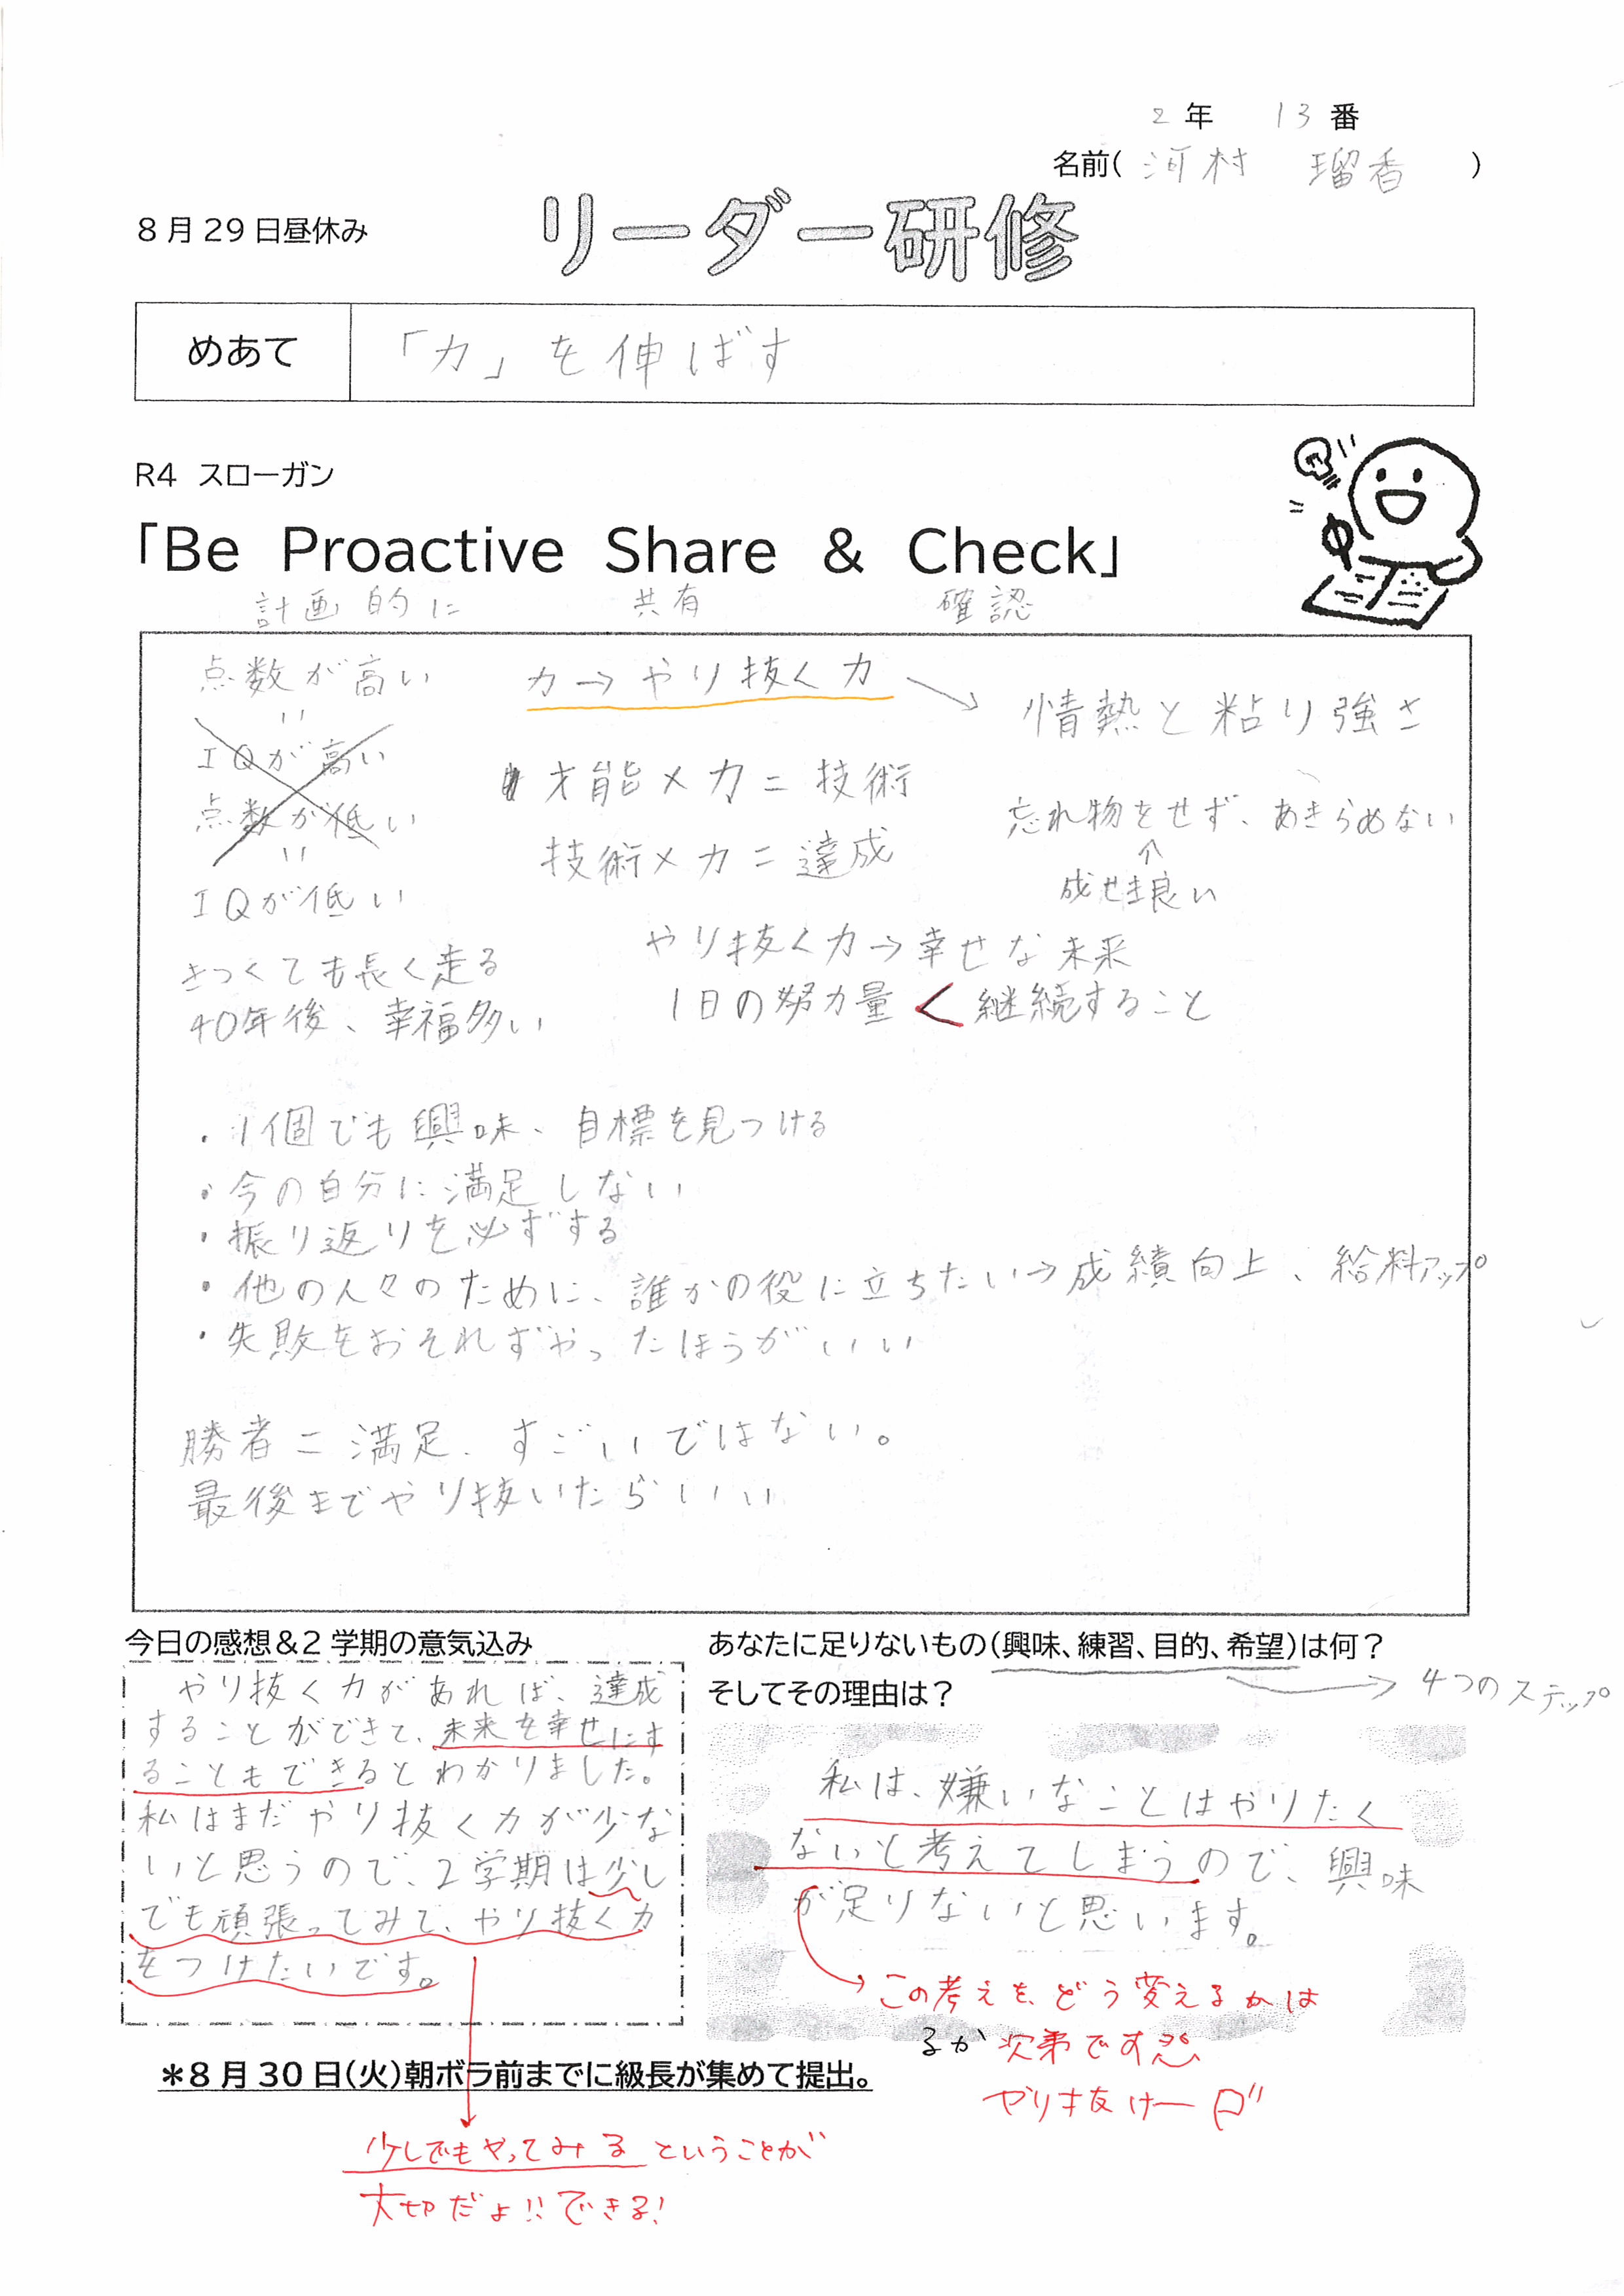 2年 13番
名前(河村 瑠香)
8月29日昼休み
リーダー研修
めあて
「力」を伸ばす
R4 スローガン
「Be Proactive Share & Check」
計画的に 共有 確認
点数が高い
=
IQが高い
点数が低い
=
IQが低い
きつくても長く走る
40年後、幸福多い
力→やり抜く力
才能×力=技術
技術×力=達成
情熱と粘り強さ
忘れ物をせず、あきらめない
↑
成せき良い
やり抜く力→幸せな未来
1日の努力量<継続すること
・1個でも興味、目標を見つける
・今の自分に満足しない
・振り返りを必ずする
・他の人々のために、誰かの役に立ちたい→成績向上、給料アップ
・失敗をおそれずやったほうがいい
勝者=満足、すごいではない。
最後までやり抜いたらいい
今日の感想&2学期の意気込み
やり抜く力があれば、達成
することができて、未来を幸せにす
ることもできるとわかりました。
私はまだやり抜く力が少な
いと思うので、2学期は少し
でも頑張ってみて、やり抜く力
をつけたいです。
あなたに足りないもの(興味、練習、目的、希望)は何?
そしてその理由は?
→4つのステップ
私は、嫌いなことはやりたく
ないと考えてしまうので、興味
が足りないと思います。
→この考えを、どう変えるかは
るか次第です
やり抜けー
*8月30日(火)朝ボラ前までに級長が集めて提出。
少しでもやってみるということが
大切だよ!!できる!